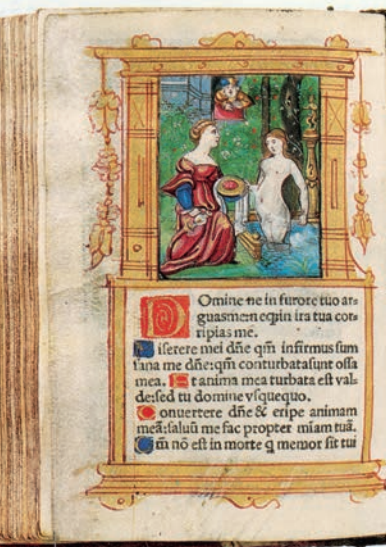 Domine ne in furore tuo ar⸗
guas me: neq; in ira tua cor⸗
ripias me.
Miserere mei dñe qm̃ infirmus sum
sana me dñe: qm̃ conturbata sunt ossa
mea. Et anima mea turbata est val⸗
de: sed tu domine vsquequo.
Conuertere dñe & eripe animam
meã: saluũ me fac propter miam tuã.
Qm̃ nõ est in morte q memor sit tui